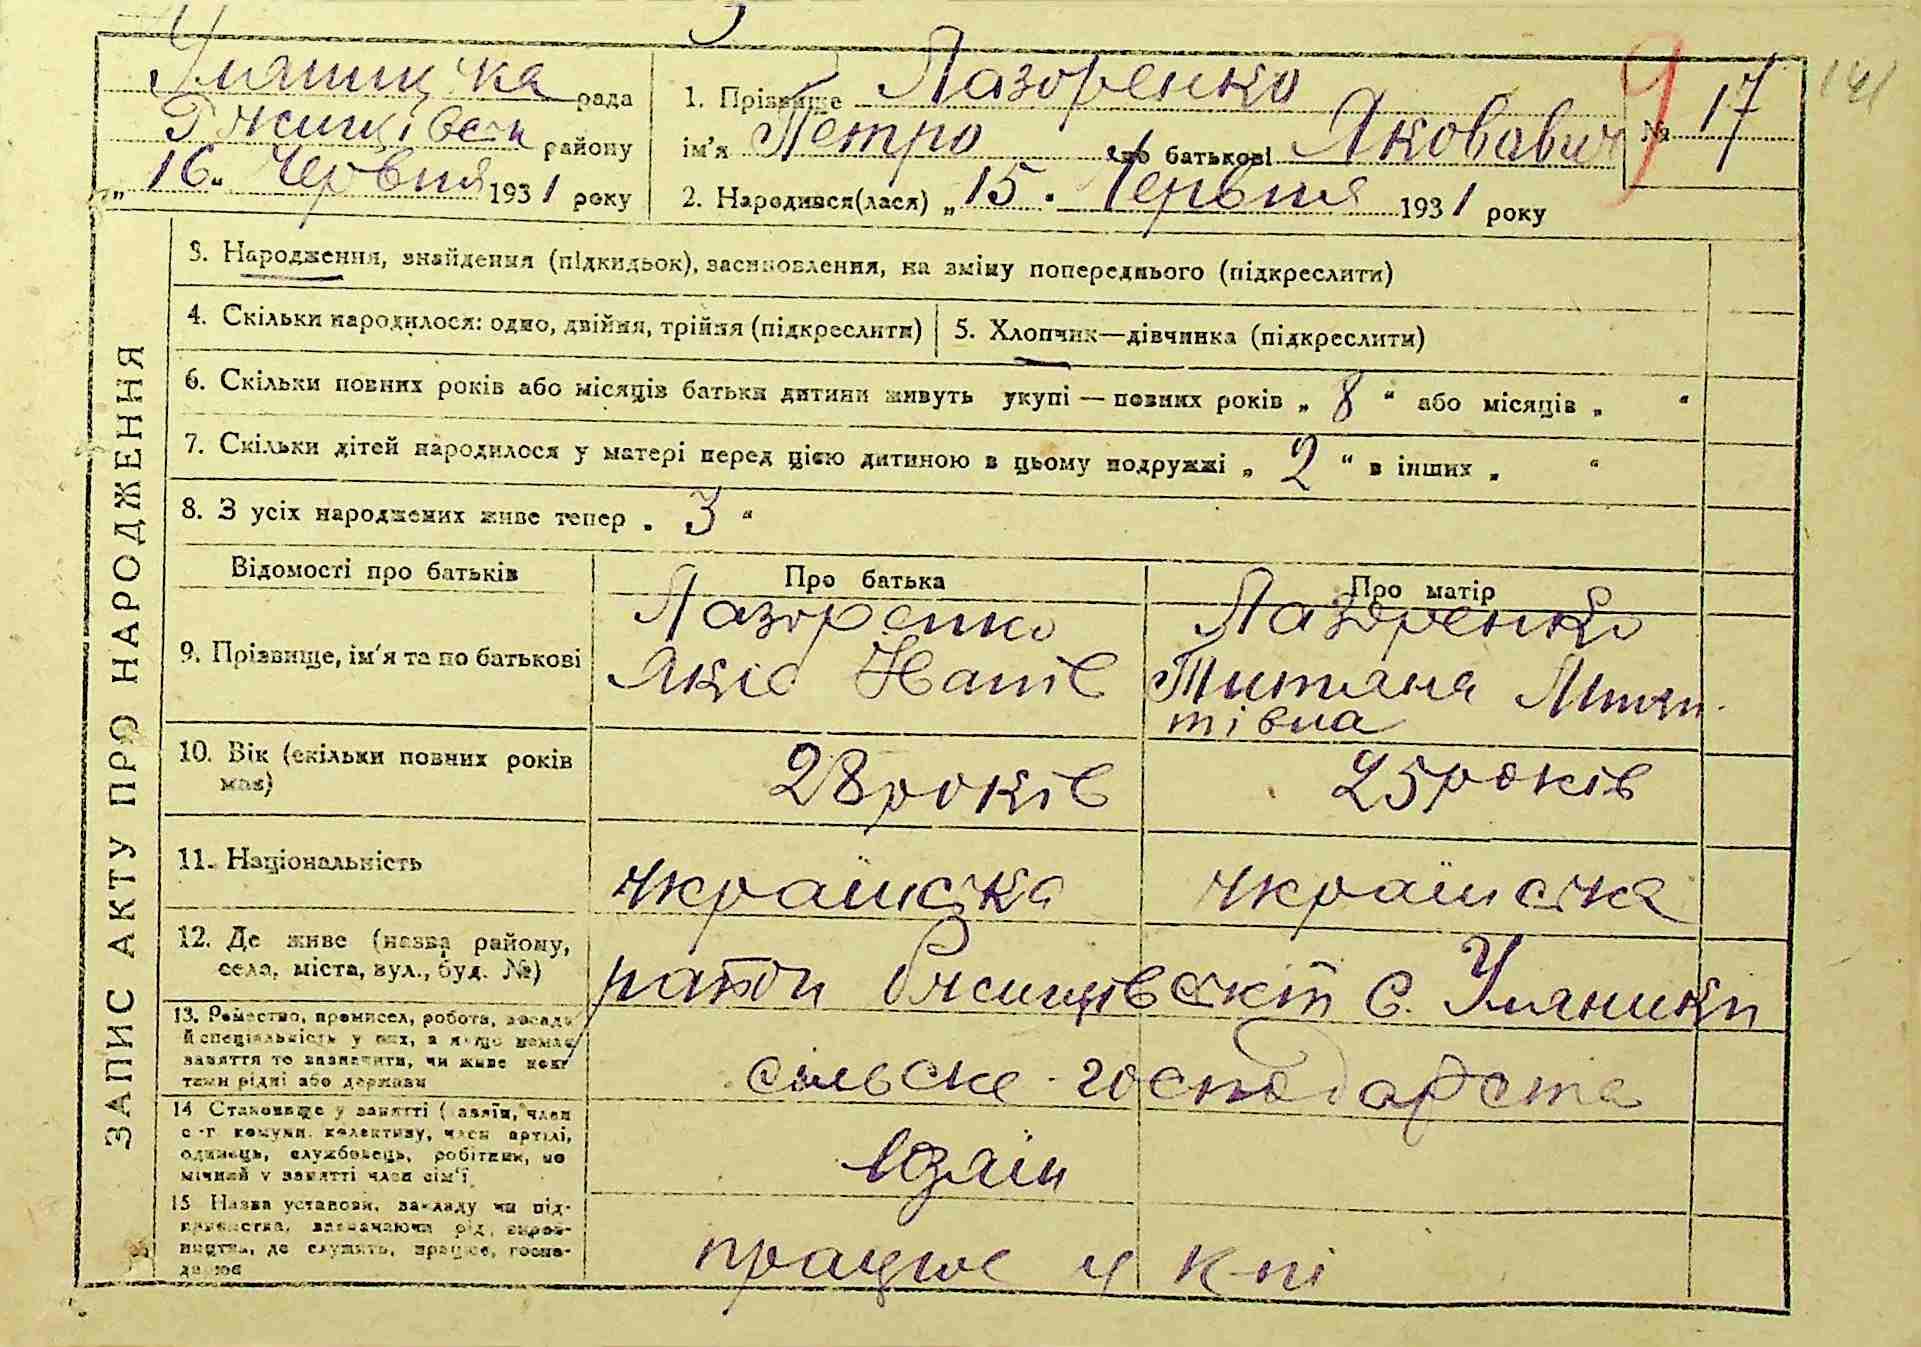 рада
району
„16“ Червня 1931 року
1. Прізвище Лазоренко
ім'я Петро по батькові Яковович
№ 17
141
2. Народився(лася) „15. Червня 1931 року
ЗАПИС АКТУ ПРО НАРОДЖЕННЯ
3. Народження, знайдення (підкидьок), засиновлення, на зміну попереднього (підкреслити)
4. Скільки народилося: одно, двійня, трійня (підкреслити)
5. Хлопчик—дівчинка (підкреслити)
6. Скільки повних років або місяців батьки дитини живуть укупі — повних років „ 8 “ або місяців „ “
7. Скільки дітей народилося у матері перед цією дитиною в цьому подружжі „ 2 “ в інших „ “
8. З усіх народжених живе тепер „ 3 “
Відомості про батьків
Про батька
Про матір
9. Прізвище, ім'я та по батькові
Лазоренко
Лазоренко
Титяна
тівна
10. Вік (скільки повних років
має)
28 років
25 років
11. Національність
україсцка
україиска
12. Де живе (назва району,
села, міста, вул., буд. №)
с. Уляники
13. Ремество, промисел, робота, посада
й спеціальність у них, а якщо немає
заняття то зазначити, чи живе кош
тами рідні або держави
сільске господарста
14 Становище у занятті (хазяїн, член
с.-г. комуни, колективу, член артілі,
одинець, службовець, робітник, по
мічний у занятті член сім'ї
15 Назва установи, закладу чи під-
приємства, зазначаючи рід вироб-
ництва, де служить, працює, госпо-
дарює
працює у